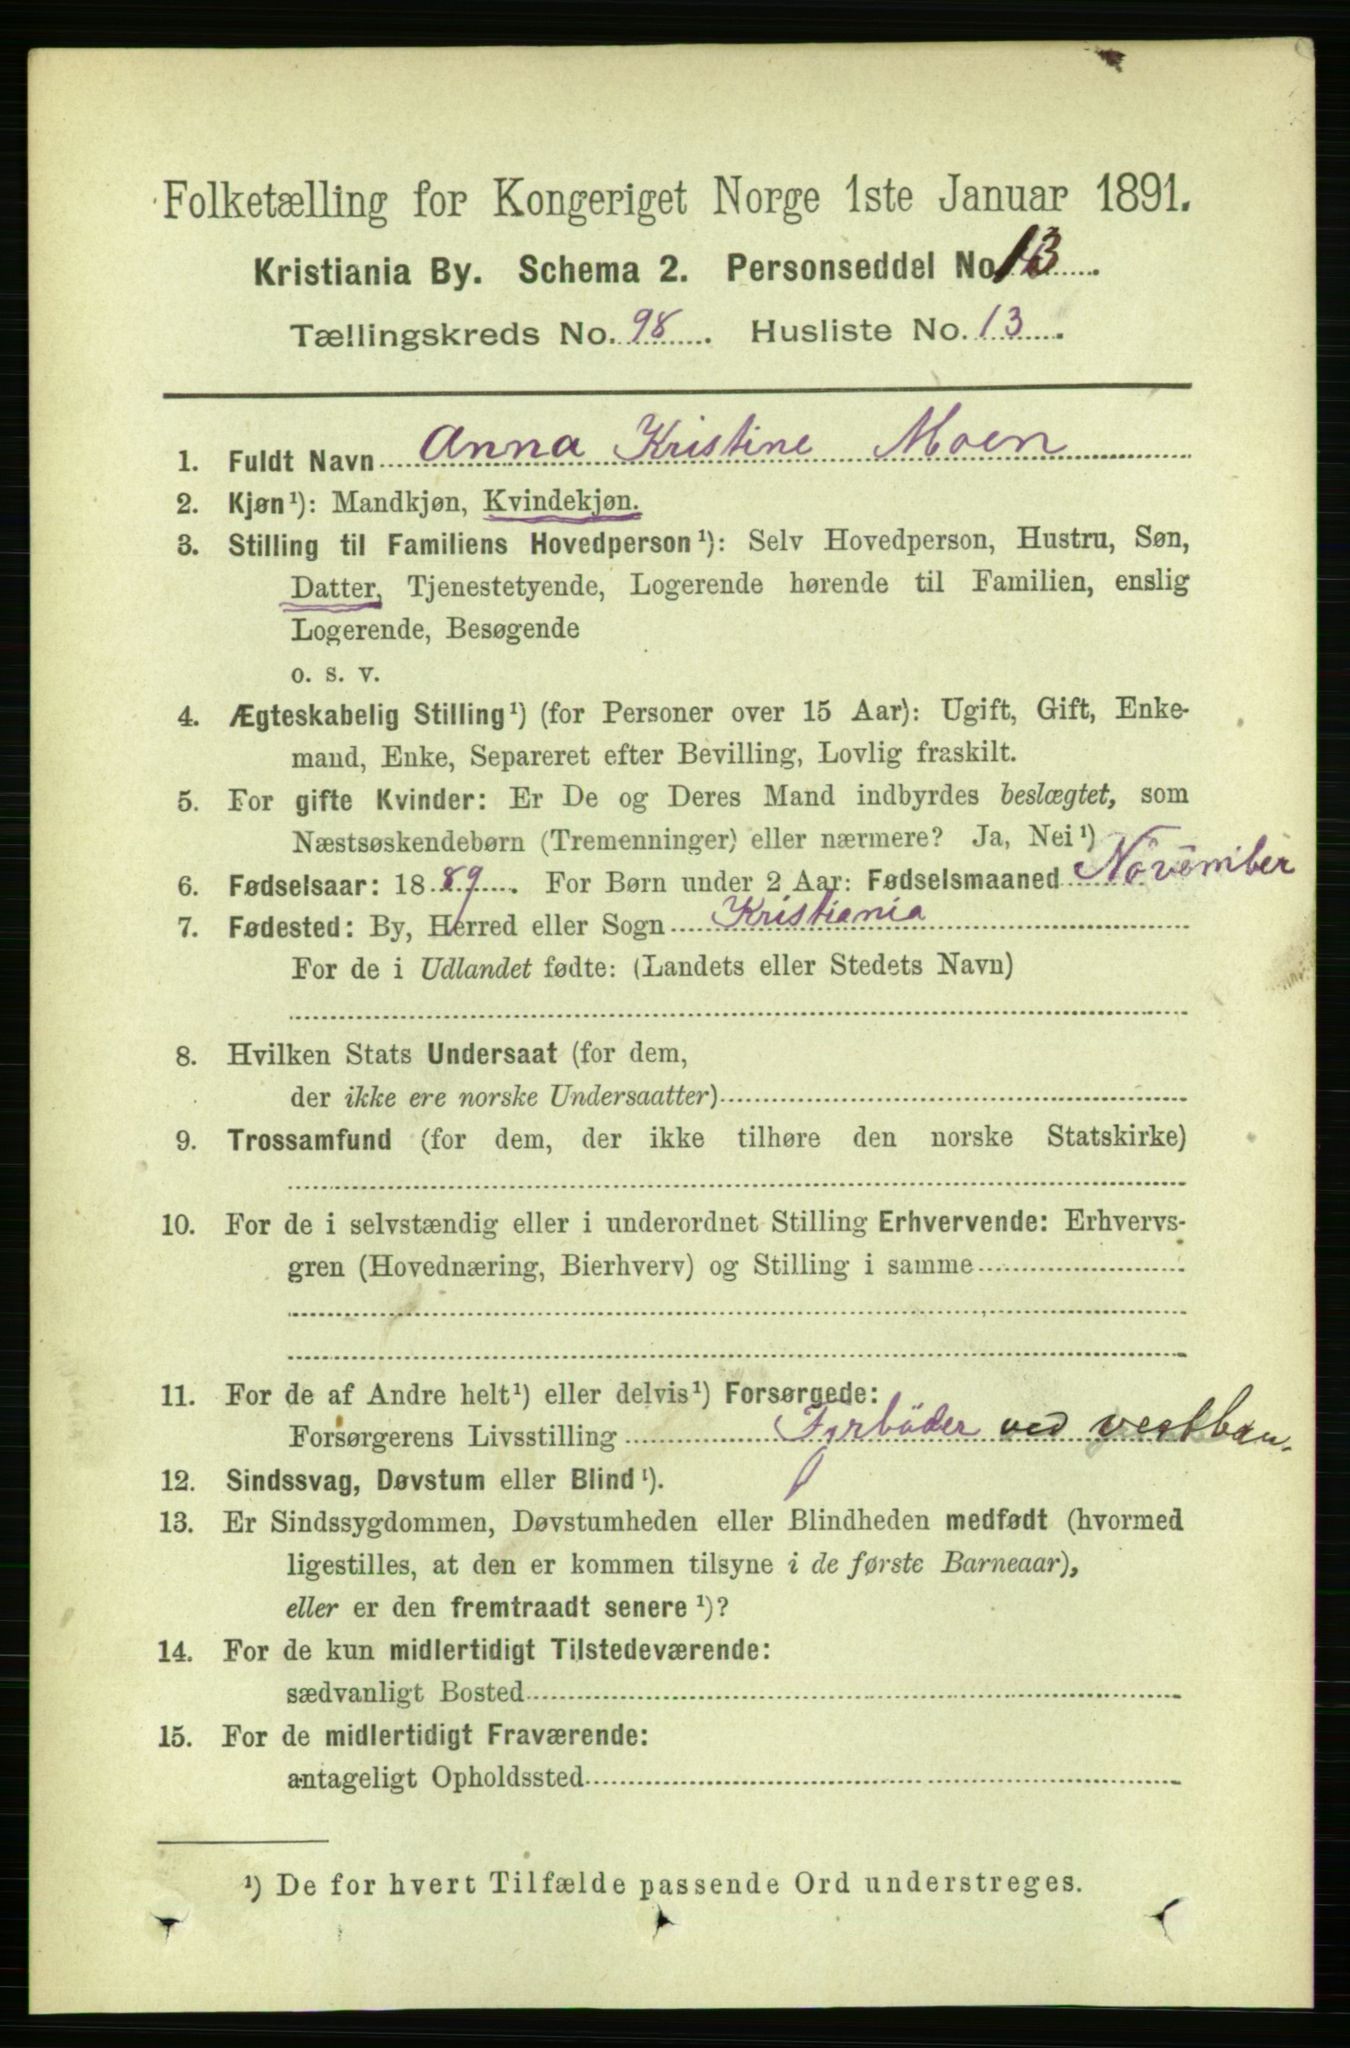 Folketælling for Kongeriget Norge 1ste Januar 1891.
Kristiania By. Schema 2. Personseddel No 13
Tællingskreds No. 98. Husliste No. 13.
1. Fuldt Navn Anna Kristine Moen
2. Kjøn¹): Mandkjøn, Kvindekjøn.
3. Stilling til Familiens Hovedperson¹): Selv Hovedperson, Hustru, Søn,
Datter, Tjenestetyende, Logerende hørende til Familien, enslig
Logerende, Besøgende
o. s. v.
4. Ægteskabelig Stilling¹) (for Personer over 15 Aar): Ugift, Gift, Enke-
mand, Enke, Separeret efter Bevilling, Lovlig fraskilt.
5. For gifte Kvinder: Er De og Deres Mand indbyrdes beslægtet, som
Næstsøskendebørn (Tremenninger) eller nærmere? Ja, Nei¹)
6. Fødselsaar: 1889. For Børn under 2 Aar: Fødselsmaaned November
7. Fødested: By, Herred eller Sogn Kristiania
For de i Udlandet fødte: (Landets eller Stedets Navn)
8. Hvilken Stats Undersaat (for dem,
der ikke ere norske Undersaatter)
9. Trossamfund (for dem, der ikke tilhøre den norske Statskirke)
10. For de i selvstændig eller i underordnet Stilling Erhvervende: Erhvervs-
gren (Hovednæring, Bierhverv) og Stilling i samme
11. For de af Andre helt¹) eller delvis¹) Forsørgede:
Forsørgerens Livsstilling Fyrböder ved vestban.
12. Sindssvag, Døvstum eller Blind¹).
13. Er Sindssygdommen, Døvstumheden eller Blindheden medfødt (hvormed
ligestilles, at den er kommen tilsyne i de første Barneaar),
eller er den fremtraadt senere¹)?
14. For de kun midlertidigt Tilstedeværende:
sædvanligt Bosted
15. For de midlertidigt Fraværende:
antageligt Opholdssted
¹) De for hvert Tilfælde passende Ord understreges.